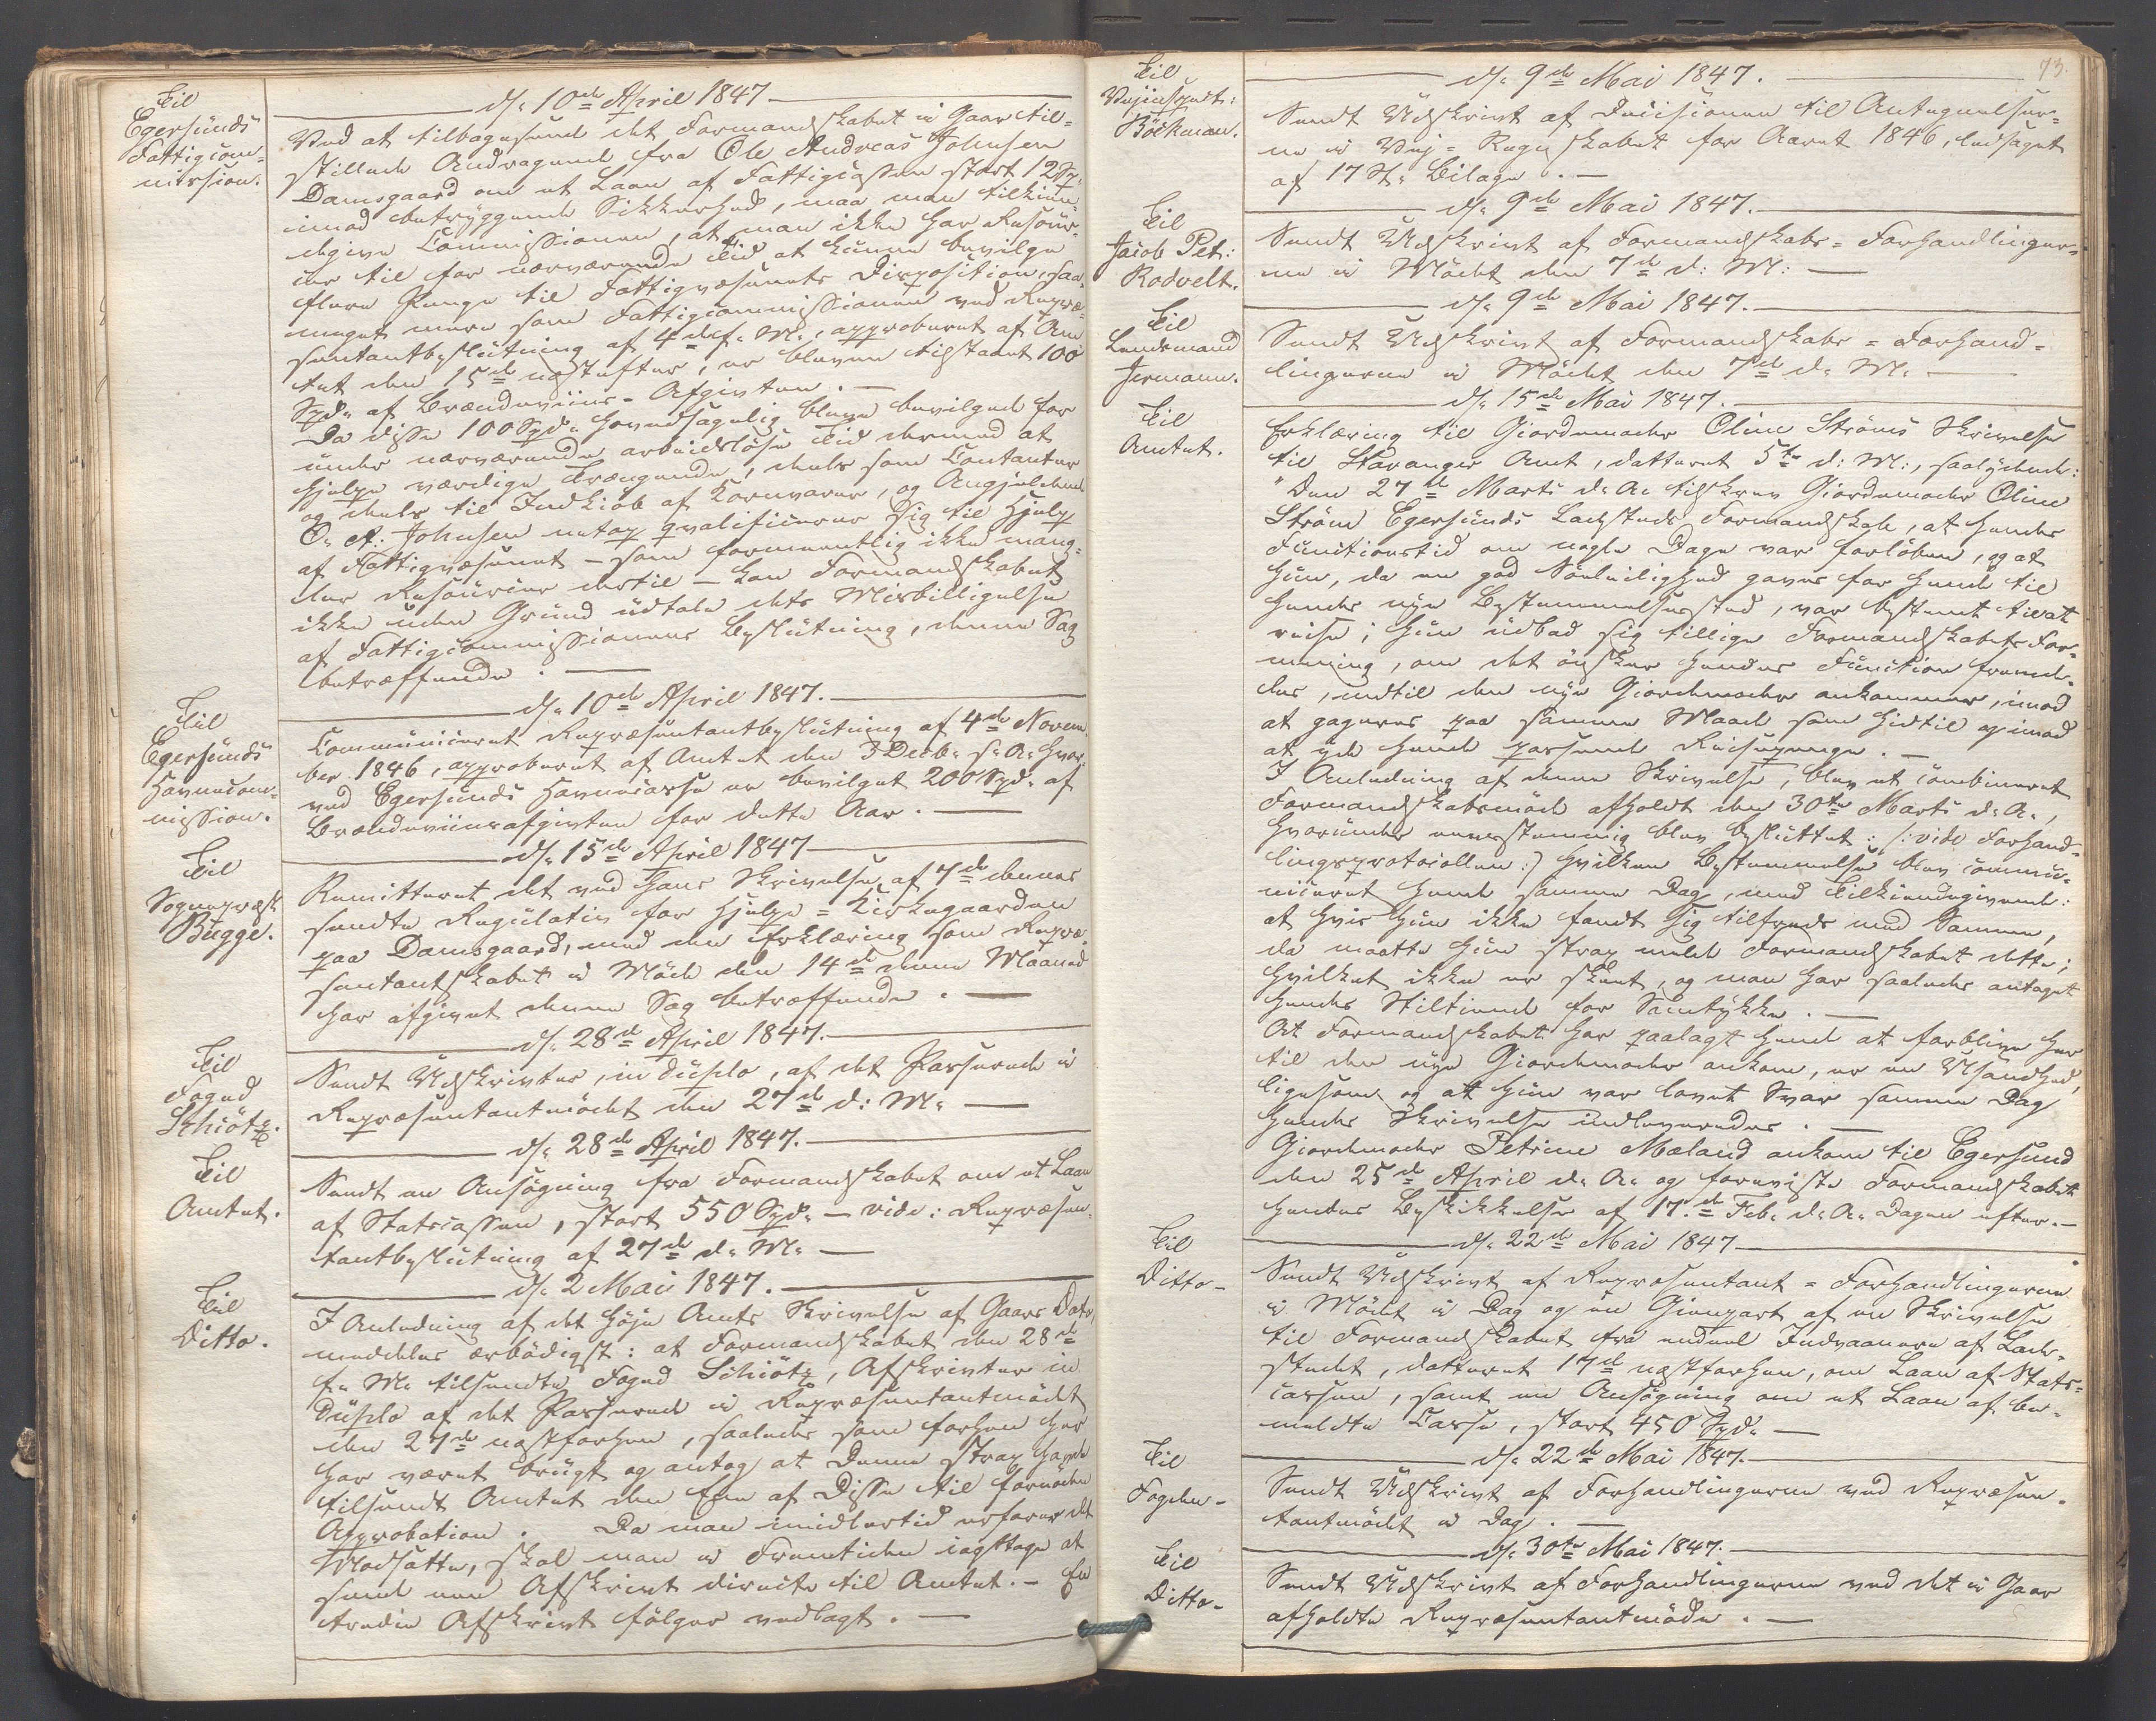 Til
Egersunds
Fattigcom-
mission.
d/: 10de April 1847
Ved at tilbagesende det Formandskabet i Gaar til-
stillede Andragende fra Ole Andreas Johnsen
Damsgaard om et Laan af Fattigcassen stort 12 Sp:
imod betryggende Sikkerhed, maa man tilkien-
degive Commissionen, at man ikke har Resour-
cer til for nærværende Tid at kunne bevilge
flere Penge til Fattigvæsenets Disposition, saa
meget mere som Fattigcommissionen ved Repræ-
sentantbeslutning af 4de f. M., approberet af Am
tet den 15de næstefter, er bleven tilstaaet 100
Spd. af Brændeviins-Afgivten. —
Da disse 100 Spd. hovedsagelig bleve bevilgede for
under nærværende arbeidsløse Tid dermed at
hjelpe værdige Trængende, deels som Contanter
og deels til Indkiøb af Kornvarer, og Angjeldende
O. A: Johnsen netop qvalificerer sig til Hjelp
af Fattigvæsenet — som formeentlig ikke mang-
ler Resourcer dertil — kan Formandskabet
ikke uden Grund udtale dets Misbilligelse
af Fattigcommissionens Beslutning, denne Sag
betræffende. —
Til
Egersunds
Havnecom-
mission.
d/: 10de April 1847.
Communiceret Repræsentantbeslutning af 4de Novem
ber 1846, approberet af Amtet den 3 Decb. s. A. hvor-
ved Egersunds Havnecasse er bevilget 200 Spd. af
Brændeviinsafgivten for dette Aar. —
Til
Sognepræst
Bugge.
d/: 15de April 1847
Remitteret det ved hans Skrivelse af 7de dennes
sendte Regulativ for Hjelpe-Kirkegaarden
paa Damsgaard, med den Erklæring som Repræ-
sentantskabet i Möde den 14de denne Maaned
har afgivet denne Sag betræffende. —
Til
Foged
Schiötz.
d/: 28de April 1847.
Sendt Udskrivter, in duplo, af det Passerede i
Repræsentantmödet den 27de d: M. —
Til
Amtet.
d/: 28de April 1847.
Sendt en Ansøgning fra Formandskabet om et Laan
af Statscassen, stort 550 Spd. — vide: Repræsen-
tantbeslutning af 27de d. M. —
Til
Ditto.
d/: 2 Mai 1847.
I Anledning af det høje Amts Skrivelse af Gaars Dato,
meddeles ærbödigst: at Formandskabet den 28de
f. M. tilsendte Foged Schiötz, Afskrivter in
duplo af det Passerede i Repræsentantmödet
den 27de næstforhen, saaledes som forhen her
har været brugt og antog at Denne strax havde
tilsendt Amtet den Ene af Disse til fornøden
Approbation. Da man imidlertid erfarer det
Modsatte, skal man i Fremtiden iagttage at
sende een Afskrivt directe til Amtet. — En
tredie Afskrivt følger vedlagt. —
73.
Til
Vejinspect:
Böckman.
d/: 9de Mai 1847.
Sendt Udskrivt af Decisionen til Antegnelser-
ne i Vej-Regnskabet for Aaret 1846, ledsaget
af 17 St. Bilage. —
Til
Jacob Pet:
Rodvelt.
d/: 9de Mai 1847.
Sendt Udskrivt af Formandskabs-Forhandlinger-
ne i Mödet den 7de d: M: —
Til
Lendsmand
Jermann.
d/: 9de Mai 1847.
Sendt Udskrivt af Formandskabs-Forhand-
lingerne i Mödet den 7de d. M. —
Til
Amtet.
d/: 15de Mai 1847.
Erklæring til Giordemoder Oline Ströms Skrivelse
til Stavanger Amt, dateret 5te d: M:, saalydende:
"Den 27de Marts d. A. tilskrev Giordemoder Oline
Ström Egersunds Ladesteds Formandskab, at hendes
Functionstid om nogle Dage var forløben, og at
hun, da en god Leilighed gaves for hende til
hendes nye Bestemmelsessted, var bestemt til at
reise; hun udbad sig tillige Formandskabets For-
mening, om det ønsker hendes Function fremde-
les, indtil den nye Giordemoder ankommer, imod
at gageres paa samme Maade som hidtil og imod
at yde hende passende Reisepenge. —
I Anledning af denne Skrivelse, blev et combineret
Formandskabsmöde afholdt den 30te Marts d. A.,
hvorunder eenstemmig blev besluttet: /: vide Forhand-
lingsprotocollen :/ hvilken Bestemmelse blev commu-
niceret hende samme Dag, med Tilkiendegivende:
at hvis hun ikke fandt sig tilfreds med Samme,
da maatte hun strax melde Formandskabet dette;
hvilket ikke er skeet, og man har saaledes antaget
hendes Stiltiende for Samtykke. —
At Formandskabet har paalagt hende at forblive her
til den nye Giordemoder ankom, er en Usandhed,
ligesom og at hun var lovet Svar samme Dag
hendes Skrivelse indleveredes. —
Giordemoder Petrine Mæland ankom til Egersund
den 25de April d. A. og foreviste Formandskabet
hendes Beskikkelse af 17de Feb. d. A. Dagen efter. —
Til
Ditto-
d/: 22de Mai 1847
Sendt Udskrivt af Repræsentant-Forhandlingerne
i Mödet i Dag og en Gienpart af en Skrivelse
til Formandskabet fra endeel Indvaanere af Lade-
stedet, dateret 17de næstforhen, om Laan af Stats-
cassen, samt en Ansøgning om et Laan af be-
meldte Casse, stort 450 Spd. —
Til
Fogden-
d/: 22de Mai 1847.
Sendt Udskrivt af Forhandlingerne ved Repræsen-
tantmödet i Dag. —
Til
Ditto-
d/: 30te Mai 1847.
Sendt Udskrivt af Forhandlingerne ved det i Gaar
afholdte Repræsentantmöde. —